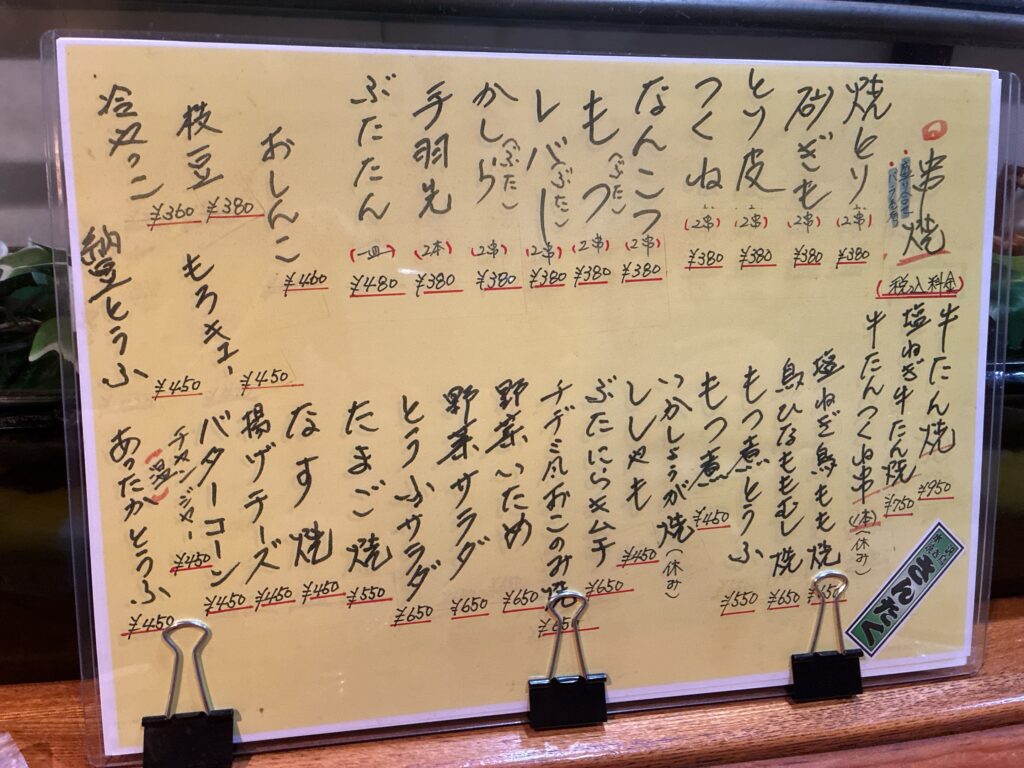 串焼
(税込料金)
焼とり (2串) ¥380
砂ぎも (2串) ¥380
とり皮 (2串) ¥380
つくね (2串) ¥380
なんこつ (2串) ¥380
もつ(ぶた) (2串) ¥380
レバー(ぶた) (2串) ¥380
かしら(ぶた) (2串) ¥380
手羽先 (2本) ¥380
ぶたたん (一皿) ¥480
おしんこ ¥460
枝豆 ¥380
冷やっこ ¥360
もろキュー ¥450
納豆とうふ ¥450
牛たん焼 ¥950
塩ねぎ牛たん焼 ¥750
牛たんつくね串(1本)(休み)
塩ねぎ鳥もも焼
鳥ひなももむし焼 ¥650
もつ煮とうふ ¥550
もつ煮 ¥450
いかしょうが焼(休み)
ししゃも ¥450
ぶたにらキムチ ¥650
チヂミ風おこのみ焼 ¥650
野菜いため ¥650
野菜サラダ ¥650
とうふサラダ ¥650
たまご焼 ¥550
なす焼 ¥450
揚げチーズ ¥450
バターコーン ¥450
チャンジャー ¥450
(温)あったかとうふ ¥450
きんたく